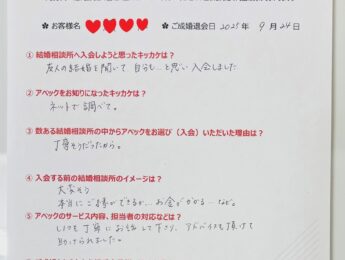 ✿ お客様名 ❤❤❤❤ ✿ ご成婚退会日 2025年 9月 24日
① 結婚相談所へ入会しようと思ったキッカケは？
友人の結婚を聞いて 自分も…と思い 入会しました
② アベックをお知りになったキッカケは？
ネットで調べて。
③ 数ある結婚相談所の中からアベックをお選び（入会）いただいた理由は？
丁寧そうだったから。
④ 入会する前の結婚相談所のイメージは？
大変そう
本当にご縁ができるか… お金がかかる… など。
⑤ アベックのサービス内容、担当者の対応などは？
いつも丁寧にお話して下さり、アドバイスも頂けて
助けられました。